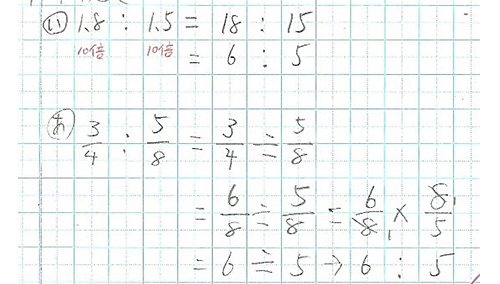 い 1.8 : 1.5 = 18 : 15
10倍 10倍 = 6 : 5
あ 3/4 : 5/8 = 3/4 ÷ 5/8
= 6/8 ÷ 5/8 = 6/8 1 × 8/5 1
= 6 ÷ 5 → 6 : 5